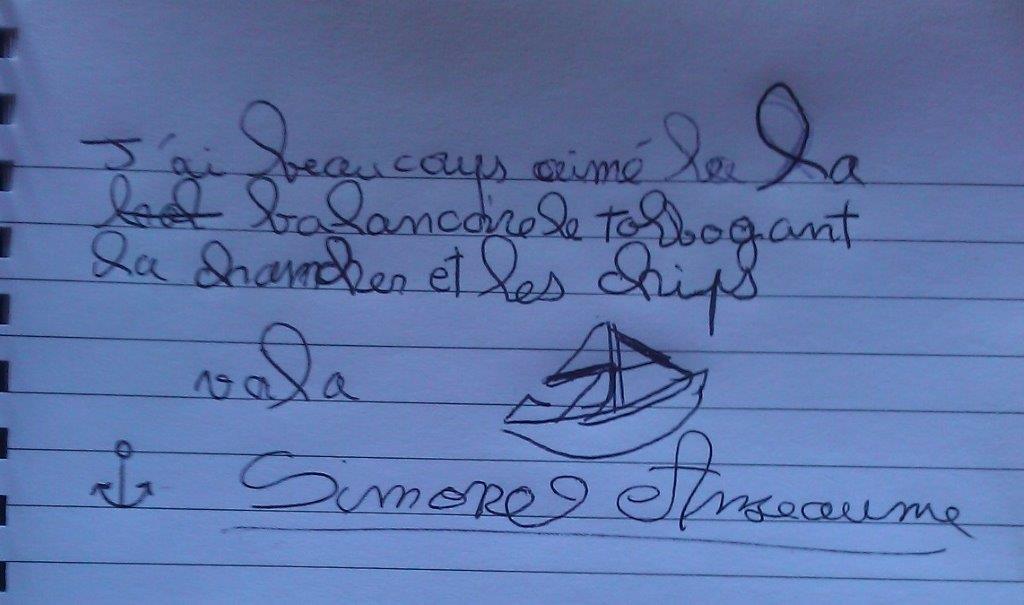 J'ai beaucoups aimé les la
balancoire le tobbogant
la chambre et les chips
vala
Simone Anseaume